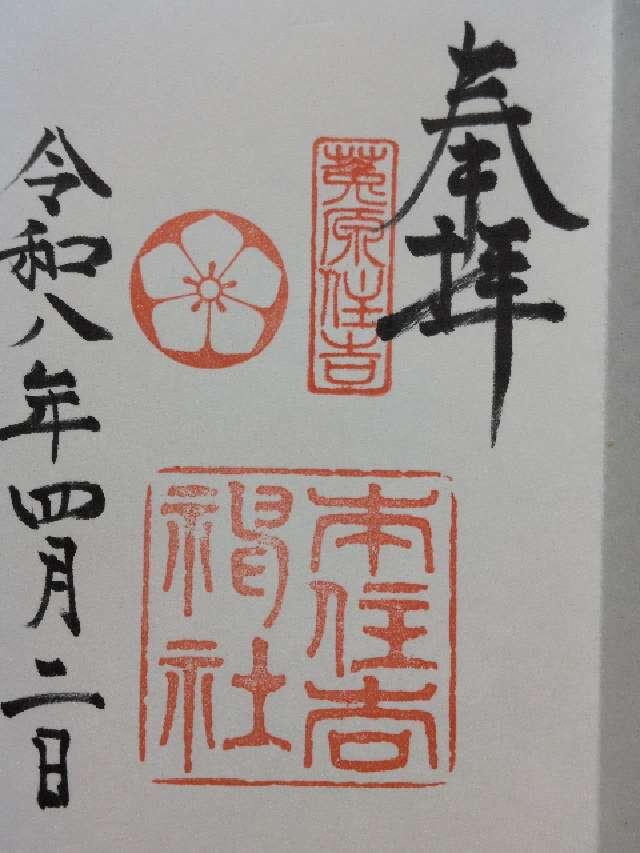 奉拝
莵原住吉
本住吉
神社
令和八年四月二日